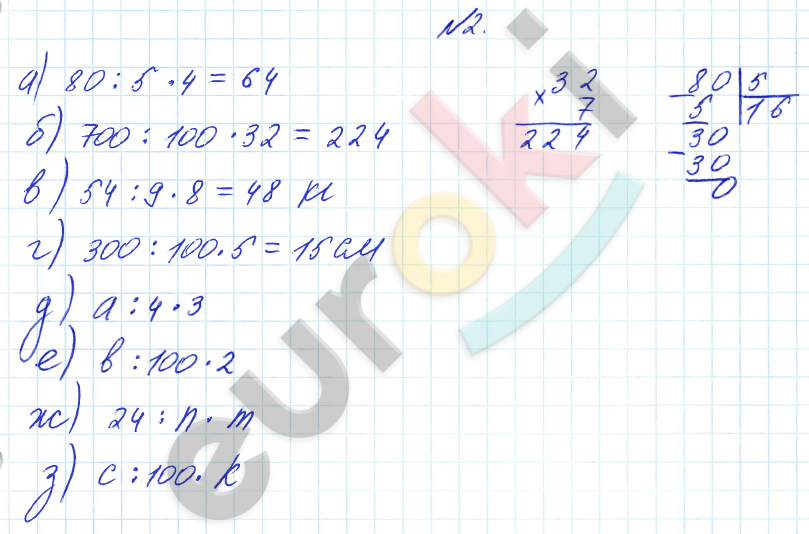 №2.
а) 80 : 5 · 4 = 64
б) 700 : 100 · 32 = 224
в) 54 : 9 · 8 = 48 кг
г) 300 : 100 · 5 = 15 см
д) a : 4 · 3
е) b : 100 · 2
ж) 24 : n · m
з) c : 100 · k
32
× 7
224
80 | 5
5 | 16
30
- 30
0
euroki